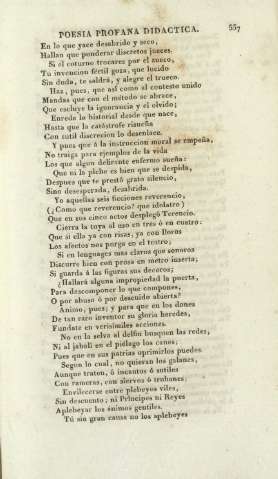 POESIA PROFANA DIDACTICA. 557
En lo que yace desabrido y seco,
Hallan que ponderar discretos jueces.
Si el coturno trocares por el zueco,
Tu invencion fértil goza, que lucido
Sin duda, te saldrá, y alegre el trueco.
Haz, pues, que así como al contexto unido
Mandas que con el método se abrece,
Que excluye la ignorancia y el olvido;
Enrede lo historial desde que nace,
Hasta que la catástrofe risueña
Con sutil discrecion lo desenlace.
Y pues que á la instruccion moral se empeña,
No traiga para ejemplos de la vida
Los que algun delirante enfermo sueña:
Que ni la plebe es bien que se despida,
Despues que te prestó grato silencio,
Sino desesperada, desabrida.
Yo aquellas seis ficciones reverencio,
(¿Como que reverencio? que idolatro)
Que en sus cinco actos desplegó Terencio.
Cierra la tuya al uso en tres ó en cuatro:
Que si ella ya con risas, ya con lloros
Los afectos nos purga en el teatro;
Si en lenguages mas claros que sonoros
Discurre bien con prosa en metro inserta;
Si guarda á las figuras sus decoros;
¿Hallará alguna impropiedad la puerta,
Para descomponer lo que compones,
O por abuso ó por descuido abierta?
Animo, pues; y para que en los dones
De tan raro inventor su gloria heredes,
Fúndate en verisímiles acciones.
No en la selva al delfin busquen las redes,
Ni al jabalí en el piélago los canes;
Pues que en sus patrias oprimirlos puedes
Segun lo cual, no quieran los galanes,
Aunque traten, ó incautos ó sutiles
Con rameras, con siervos ó truhanes;
Envilecerse entre plebeyos viles,
Sin descuento; ni Príncipes ni Reyes
Aplebeyar los ánimos gentiles.
Tú sin gran causa no los aplebeyes